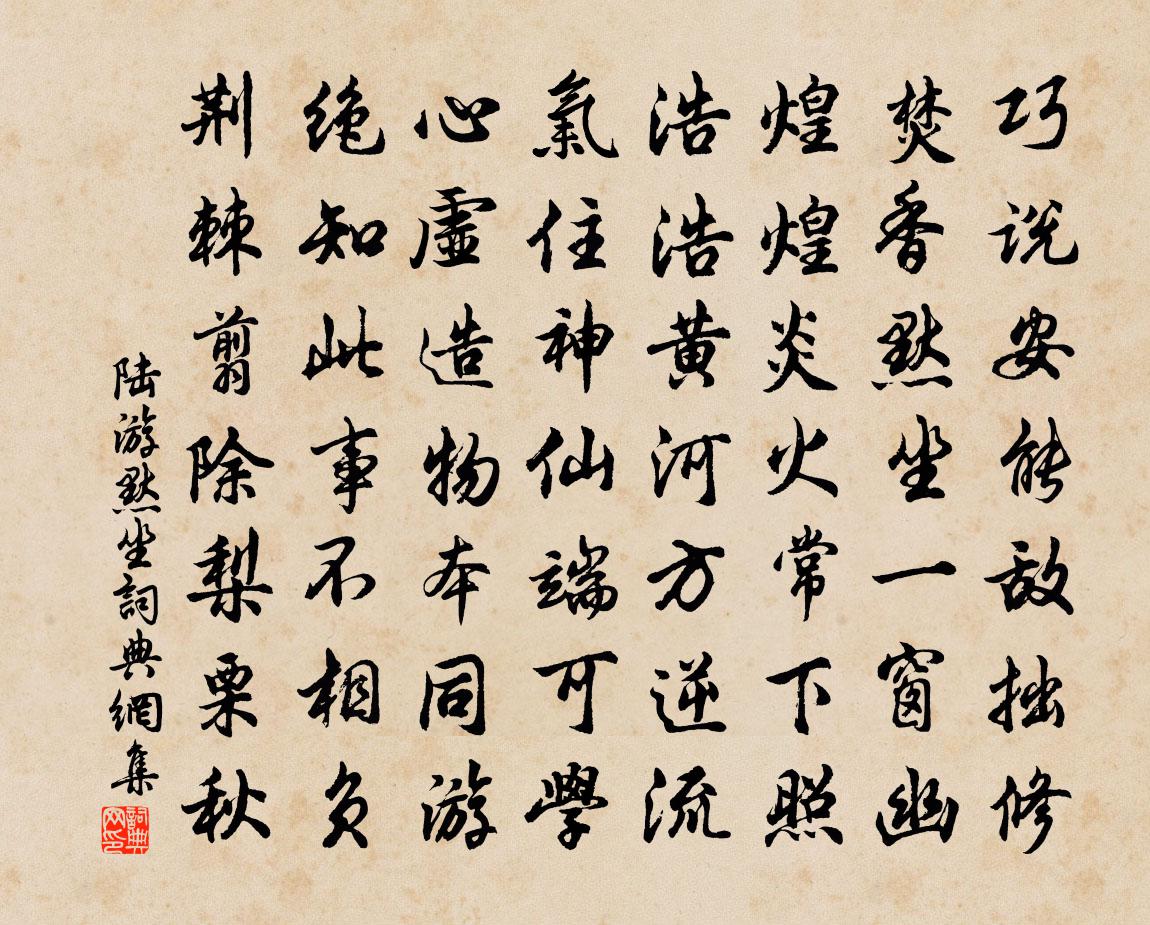 巧說安能敌拙修
焚香默坐一窗幽
煌煌炎火常下照
浩浩黄河方逆流
氣住神仙端可學
心虛造物本同游
绝知此事不相負
荆棘翦除梨栗秋
陆游默坐詞典網集
詞典网印